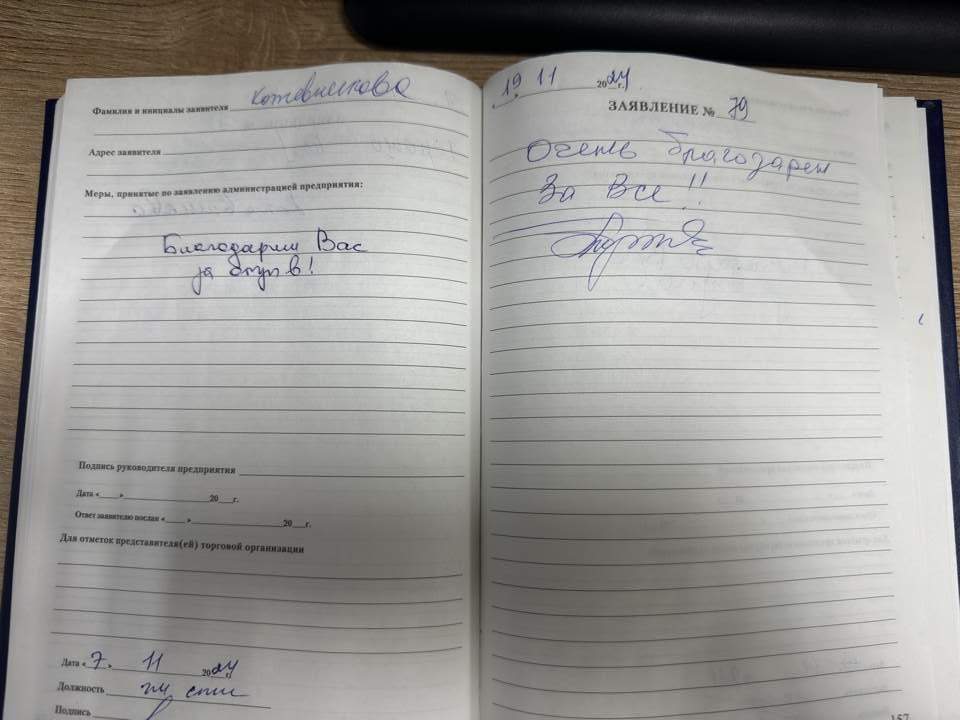 Фамилия и инициалы заявителя
Адрес заявителя
Меры, принятые по заявлению администрацией предприятия:
Благодарим Вас
за
Подпись руководителя предприятия
Дата «___» 20___г.
Ответ заявителю послан «___» 20___г.
Для отметок представителя(ей) торговой организации
Дата «7.» 11 2024 г.
Должность
Подпись
19 11 2024 г.
ЗАЯВЛЕНИЕ № 79
Очень благодарен
За Все!!
157